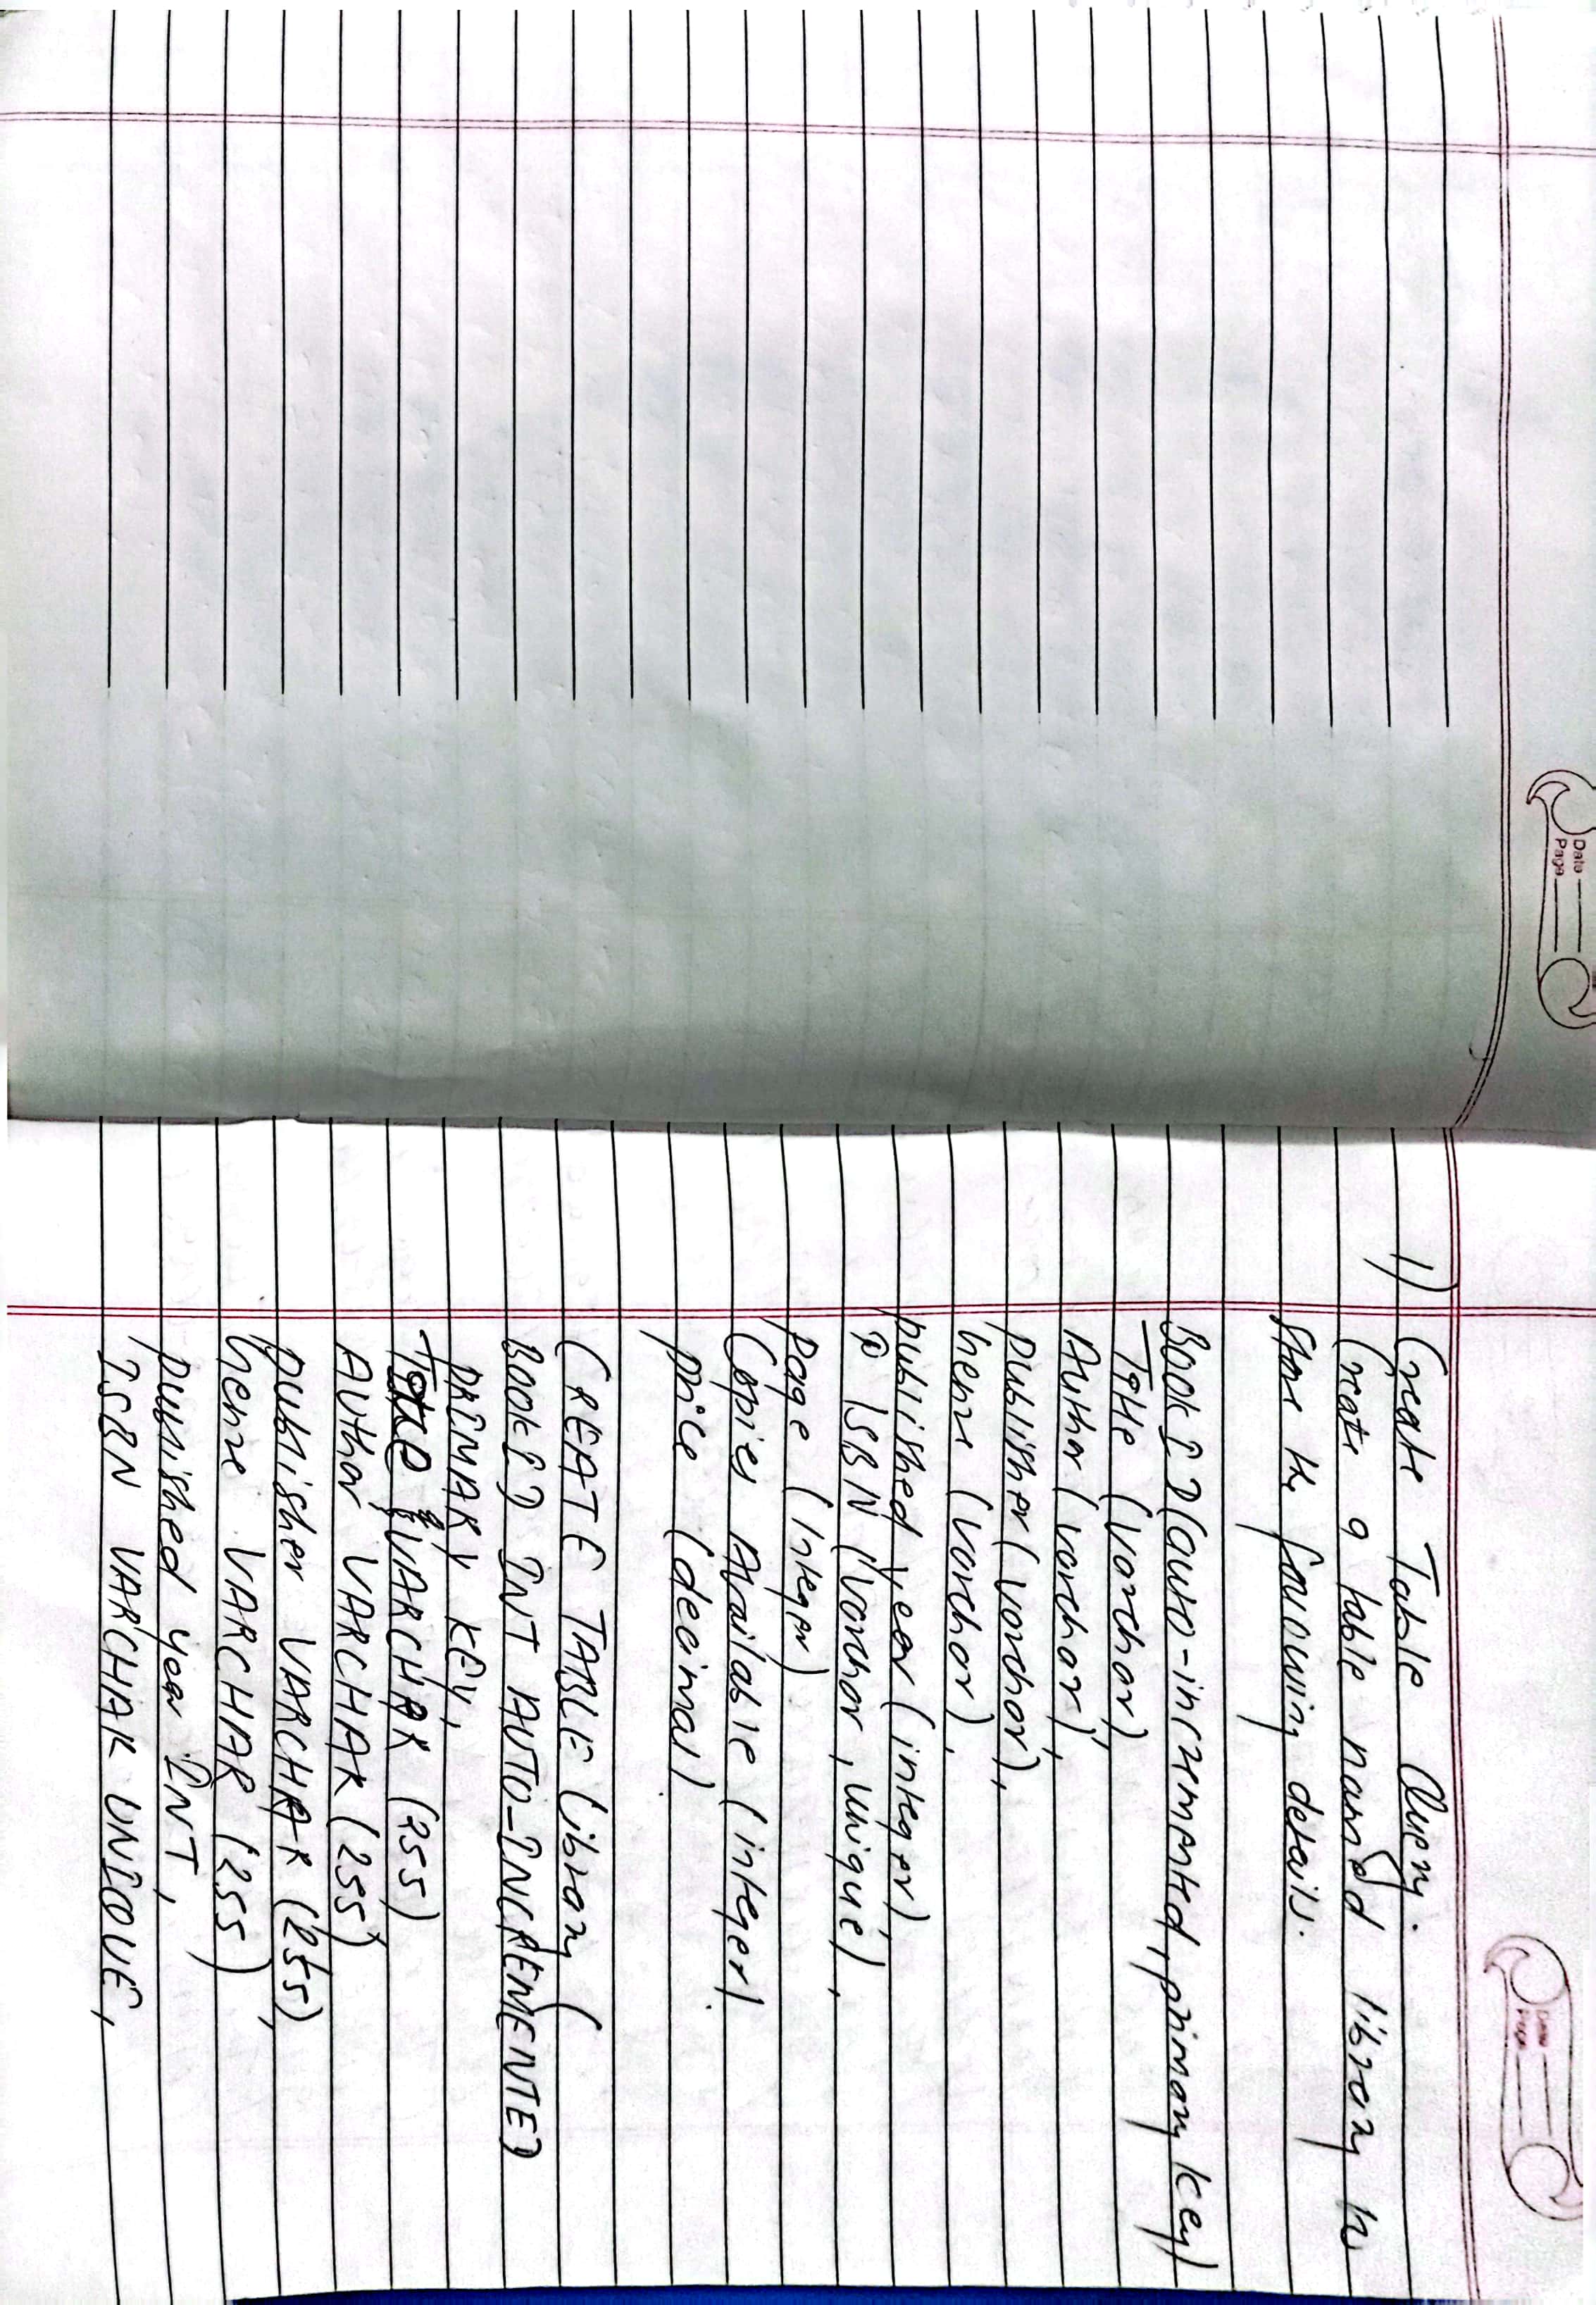 Date
Page
Date
Page
1) Create Table Query.
Create a table named library to
store the following details.
Book ID (auto-incremented, primary key)
Title (varchar),
Author (varchar),
publisher (varchar),
Genre (varchar),
published year (integer),
ISBN (varchar, unique),
page (integer)
Copies Available (integer).
price (decimal)
CREATE TABLE library (
BOOKID INT AUTO-INCREMENTED
PRIMARY KEY,
Title VARCHAR (255)
Author VARCHAR (255)
publisher VARCHAR (255),
Genre VARCHAR (255)
published year INT,
ISBN VARCHAR UNIQUE,